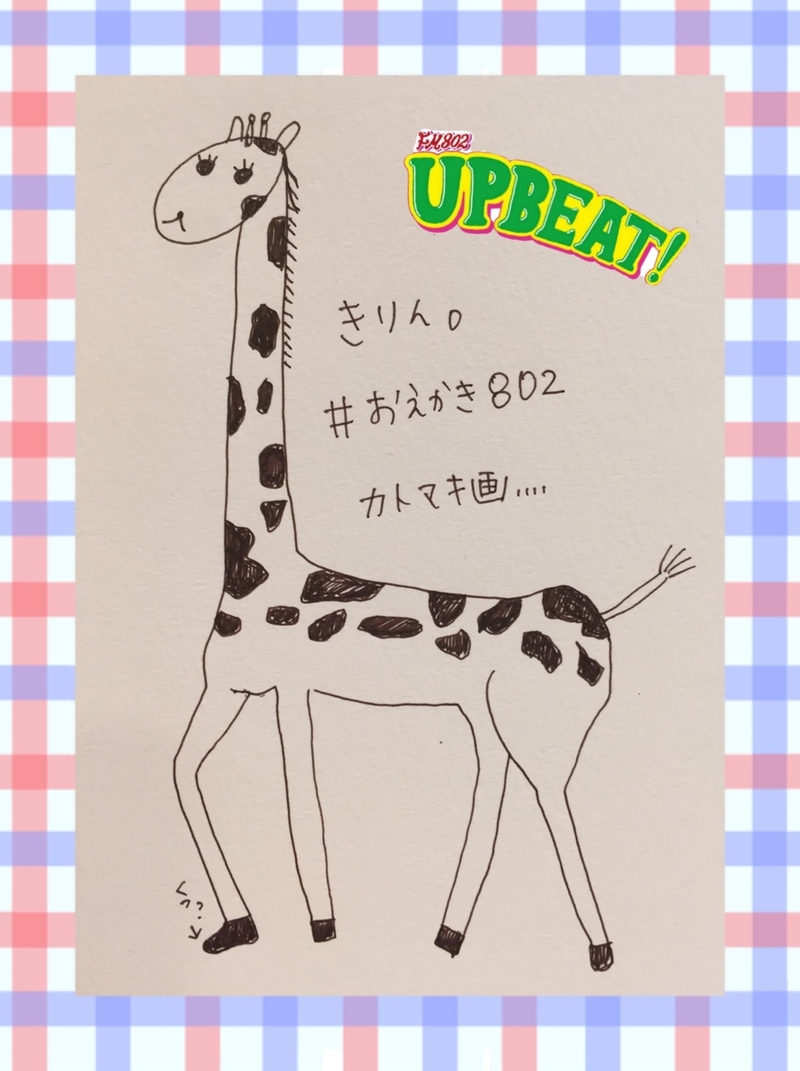 FM802
UPBEAT!
きりん。
#おえかき802
カトマキ画....
くつ?